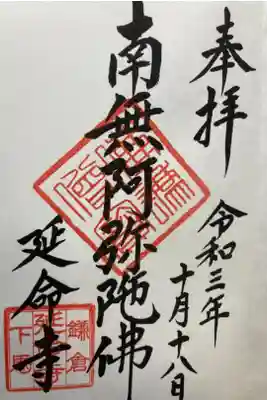 奉拝
令和三年
十月十八日
南無阿弥陀佛
延命寺
鎌倉
下馬